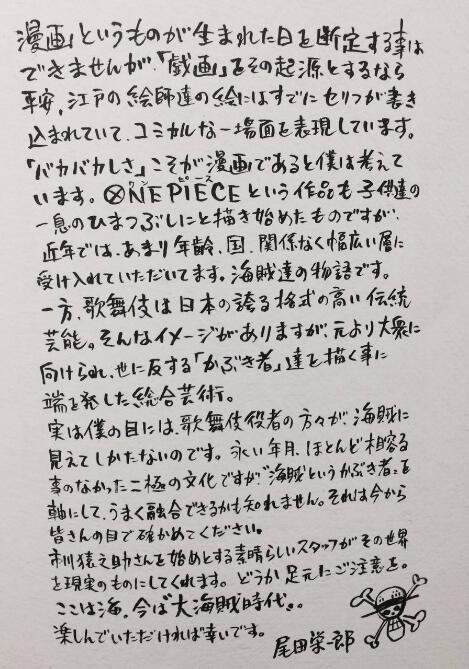 漫画というものが生まれた日を断定する事は
できませんが、「戯画」をその起源とするなら
平安、江戸の絵師達の絵にはすでにセリフが書き
込まれていて、コミカルな一場面を表現しています。
「バカバカしさ」こそが漫画であると僕は考えて
います。ONE PIECEという作品も子供達の
ワンピース
一息のひまつぶしにと描き始めたものですが、
近年では、あまり年齢、国、関係なく幅広い層に
受け入れていただいてます。海賊達の物語です。
一方、歌舞伎は日本の誇る格式の高い伝統
芸能。そんなイメージがありますが、元より大衆に
向けられ、世に反する「かぶき者」達を描く事に
端を発した総合芸術。
実は僕の目には、歌舞伎役者の方々が、海賊に
見えてしかたないのです。永い年月、ほとんど相容る
事のなかった二極の文化ですが、"海賊というかぶき者"を
軸にして、うまく融合できるかも知れません。それは今から
皆さんの目で確かめてください。
市川猿之助さんを始めとする素晴らしいスタッフがその世界
を現実のものにしてくれます。どうか足元にご注意を。
ここは海、今は"大海賊時代"。
楽しんでいただければ幸いです。
尾田栄一郎